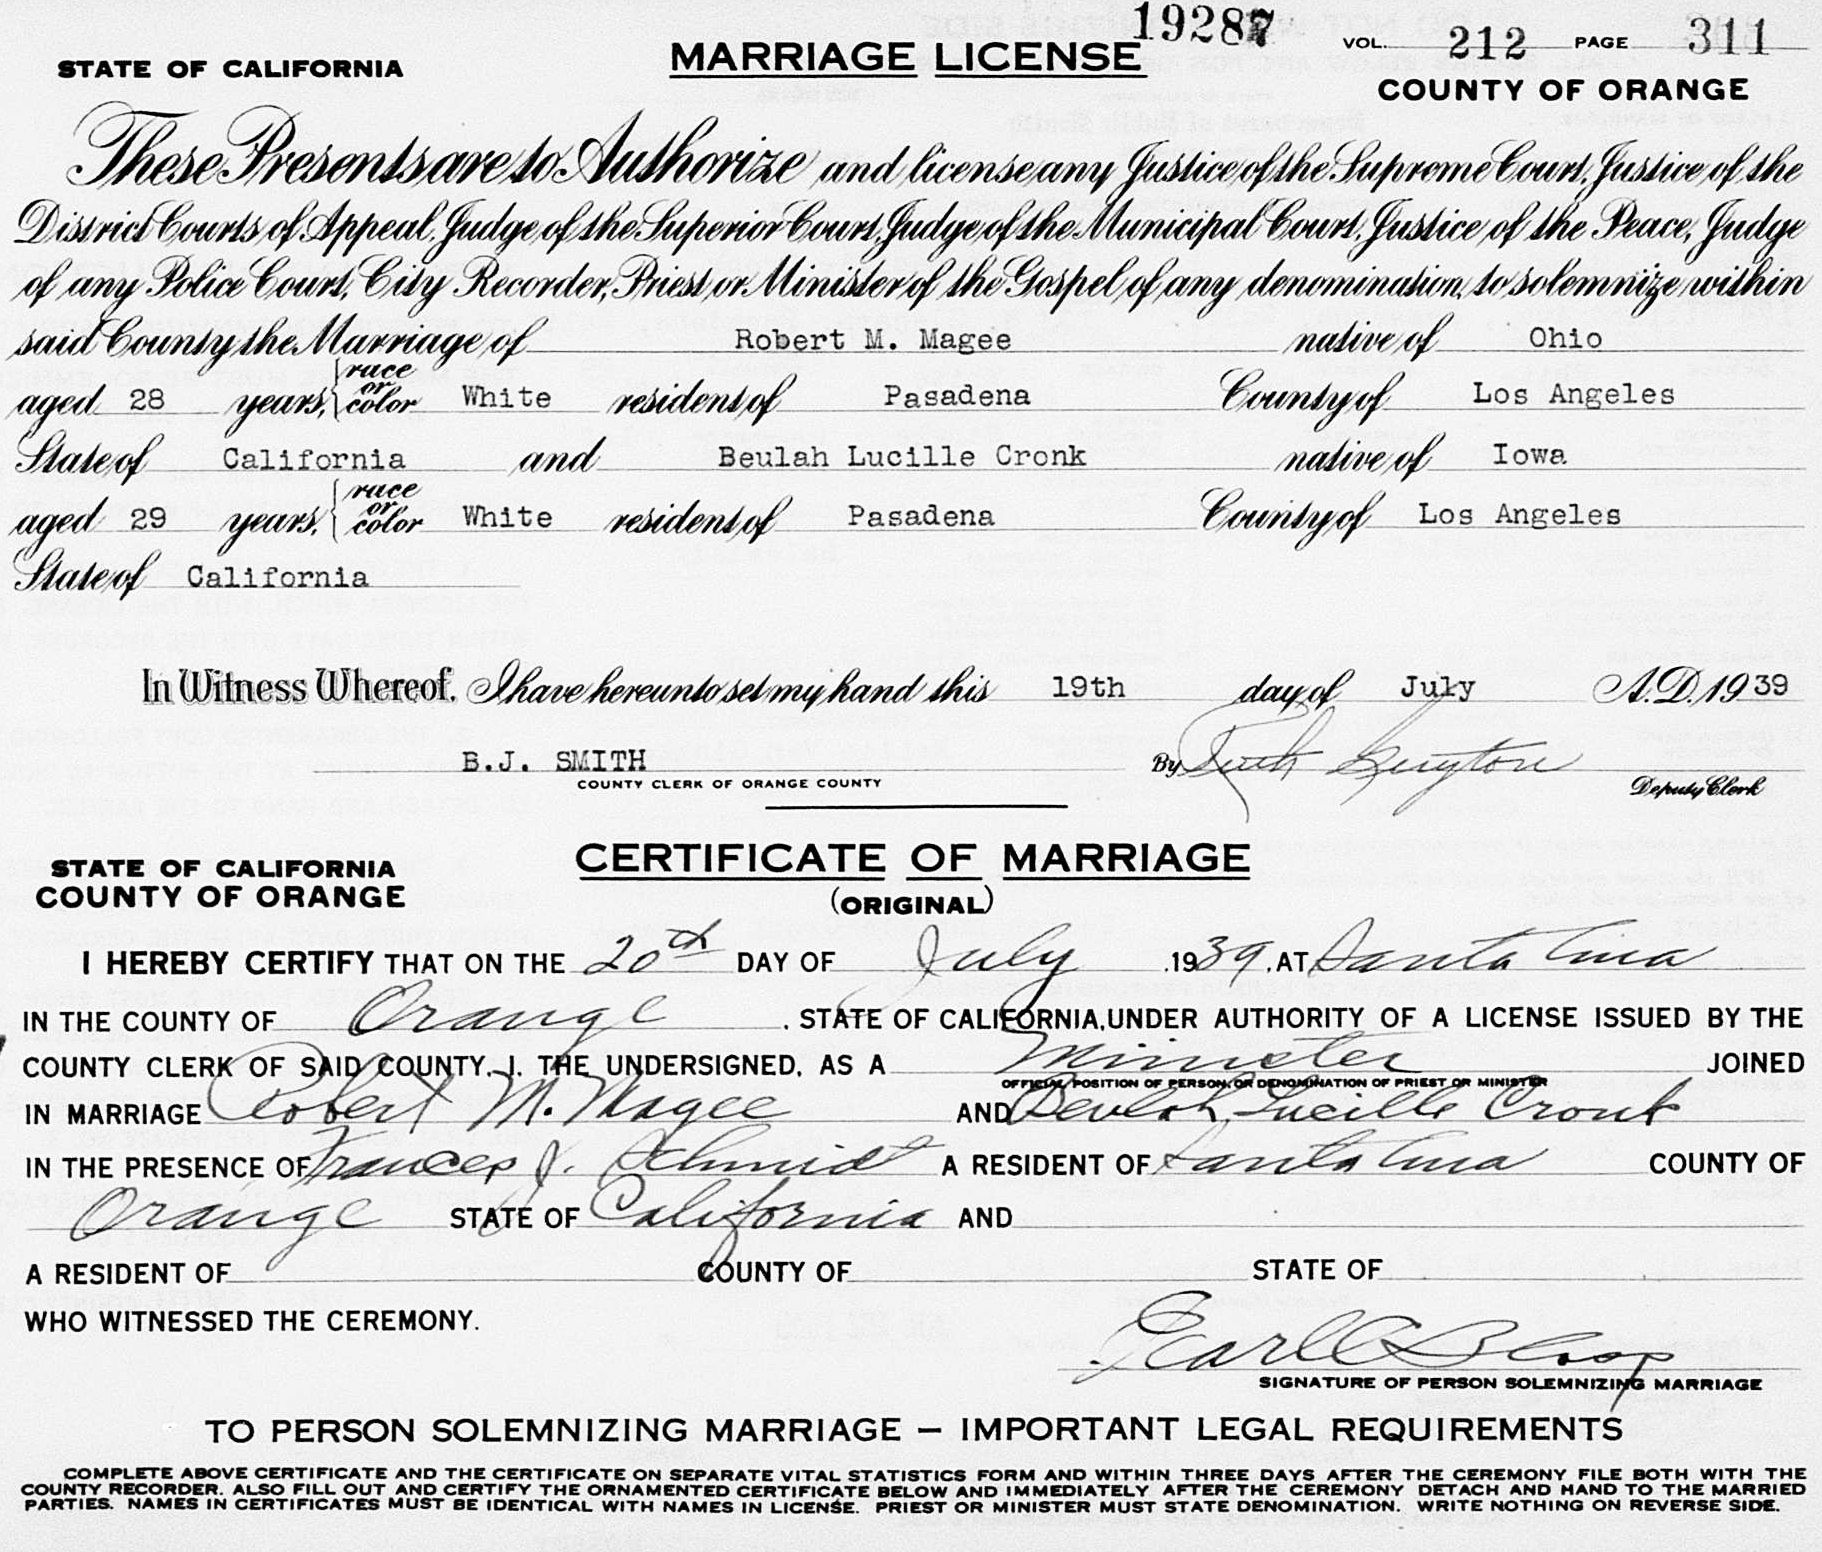 19287
VOL. 212 PAGE 311
STATE OF CALIFORNIA MARRIAGE LICENSE COUNTY OF ORANGE
These Presents are to Authorize and license any Justice of the Supreme Court, Justice of the
District Courts of Appeal, Judge of the Superior Court, Judge of the Municipal Court, Justice of the Peace, Judge
of any Police Court, City Recorder, Priest or Minister of the Gospel of any denomination, to solemnize within
said County the Marriage of Robert M. Magee native of Ohio
aged 28 years, race or color White resident of Pasadena County of Los Angeles
State of California and Beulah Lucille Cronk native of Iowa
aged 29 years, race or color White resident of Pasadena County of Los Angeles
State of California
In Witness Whereof, I have hereunto set my hand this 19th day of July A.D. 1939
B.J. SMITH By Ruth
COUNTY CLERK OF ORANGE COUNTY Deputy Clerk
STATE OF CALIFORNIA CERTIFICATE OF MARRIAGE
COUNTY OF ORANGE (ORIGINAL)
I HEREBY CERTIFY THAT ON THE 20th DAY OF July , 1939, AT Santa Ana
IN THE COUNTY OF Orange , STATE OF CALIFORNIA, UNDER AUTHORITY OF A LICENSE ISSUED BY THE
COUNTY CLERK OF SAID COUNTY, I, THE UNDERSIGNED, AS A Minister JOINED
OFFICIAL POSITION OF PERSON, OR DENOMINATION OF PRIEST OR MINISTER
IN MARRIAGE Robert M. Magee AND Beulah Lucille Cronk
IN THE PRESENCE OF Frances J. Schmidt A RESIDENT OF Santa Ana COUNTY OF
Orange STATE OF California AND
A RESIDENT OF COUNTY OF STATE OF
WHO WITNESSED THE CEREMONY.
Earl C Bloss
SIGNATURE OF PERSON SOLEMNIZING MARRIAGE
TO PERSON SOLEMNIZING MARRIAGE — IMPORTANT LEGAL REQUIREMENTS
COMPLETE ABOVE CERTIFICATE AND THE CERTIFICATE ON SEPARATE VITAL STATISTICS FORM AND WITHIN THREE DAYS AFTER THE CEREMONY FILE BOTH WITH THE
COUNTY RECORDER. ALSO FILL OUT AND CERTIFY THE ORNAMENTED CERTIFICATE BELOW AND IMMEDIATELY AFTER THE CEREMONY DETACH AND HAND TO THE MARRIED
PARTIES. NAMES IN CERTIFICATES MUST BE IDENTICAL WITH NAMES IN LICENSE. PRIEST OR MINISTER MUST STATE DENOMINATION. WRITE NOTHING ON REVERSE SIDE.